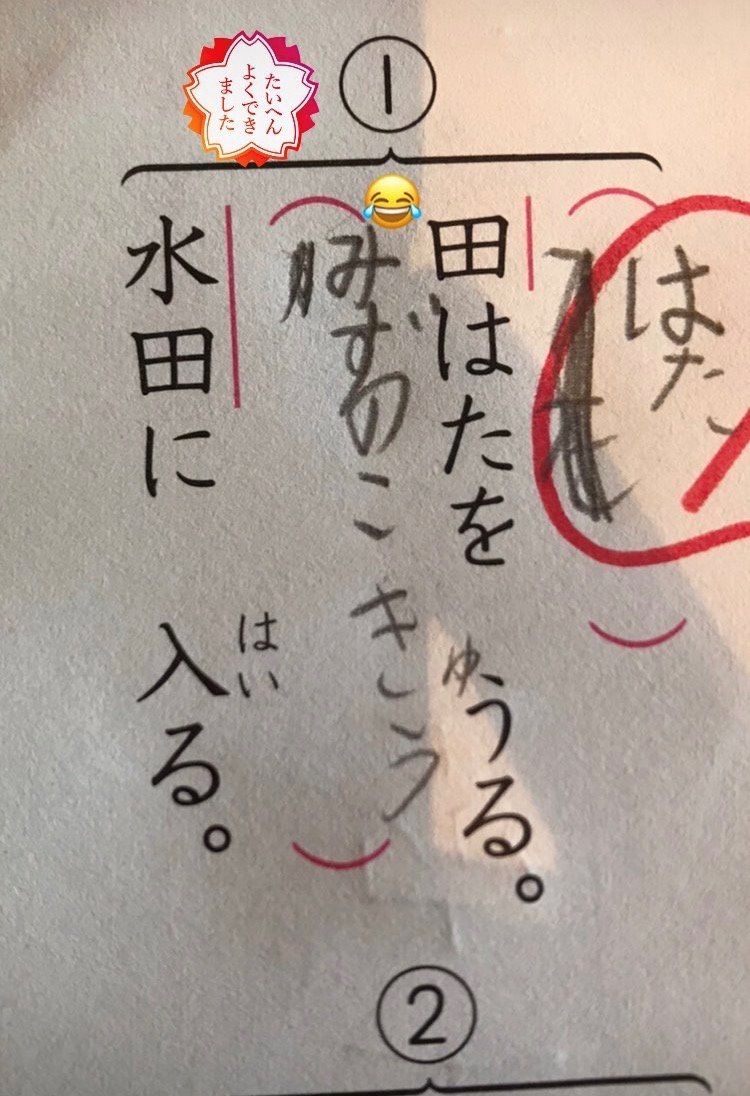 ①
たいへん
よくでき
ました
はた
田はたを うる。
みずのこきゆう
水田に 入る。
はい
②